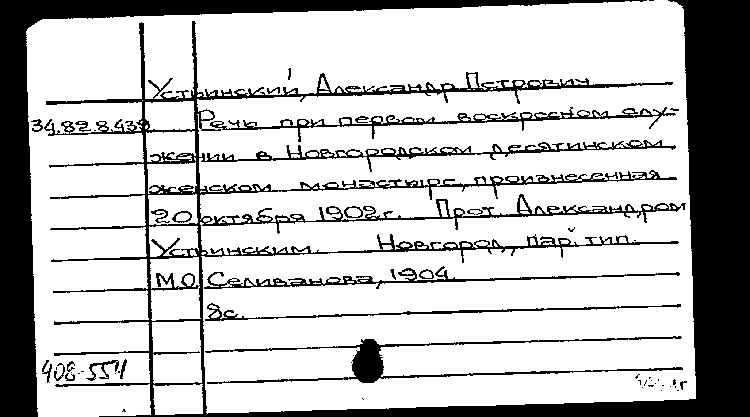 Устьинский, Александр Петрович
34.82.8.439 Речь при первом воскресном слу-
жении в Новгородском десятинском
женском монастыре, произнесенная
20 октября 1902г. Прот. Александром
Устьинским. Новгород, пар. тип.
М.О. Селиванова, 1904.
8с.
408-554